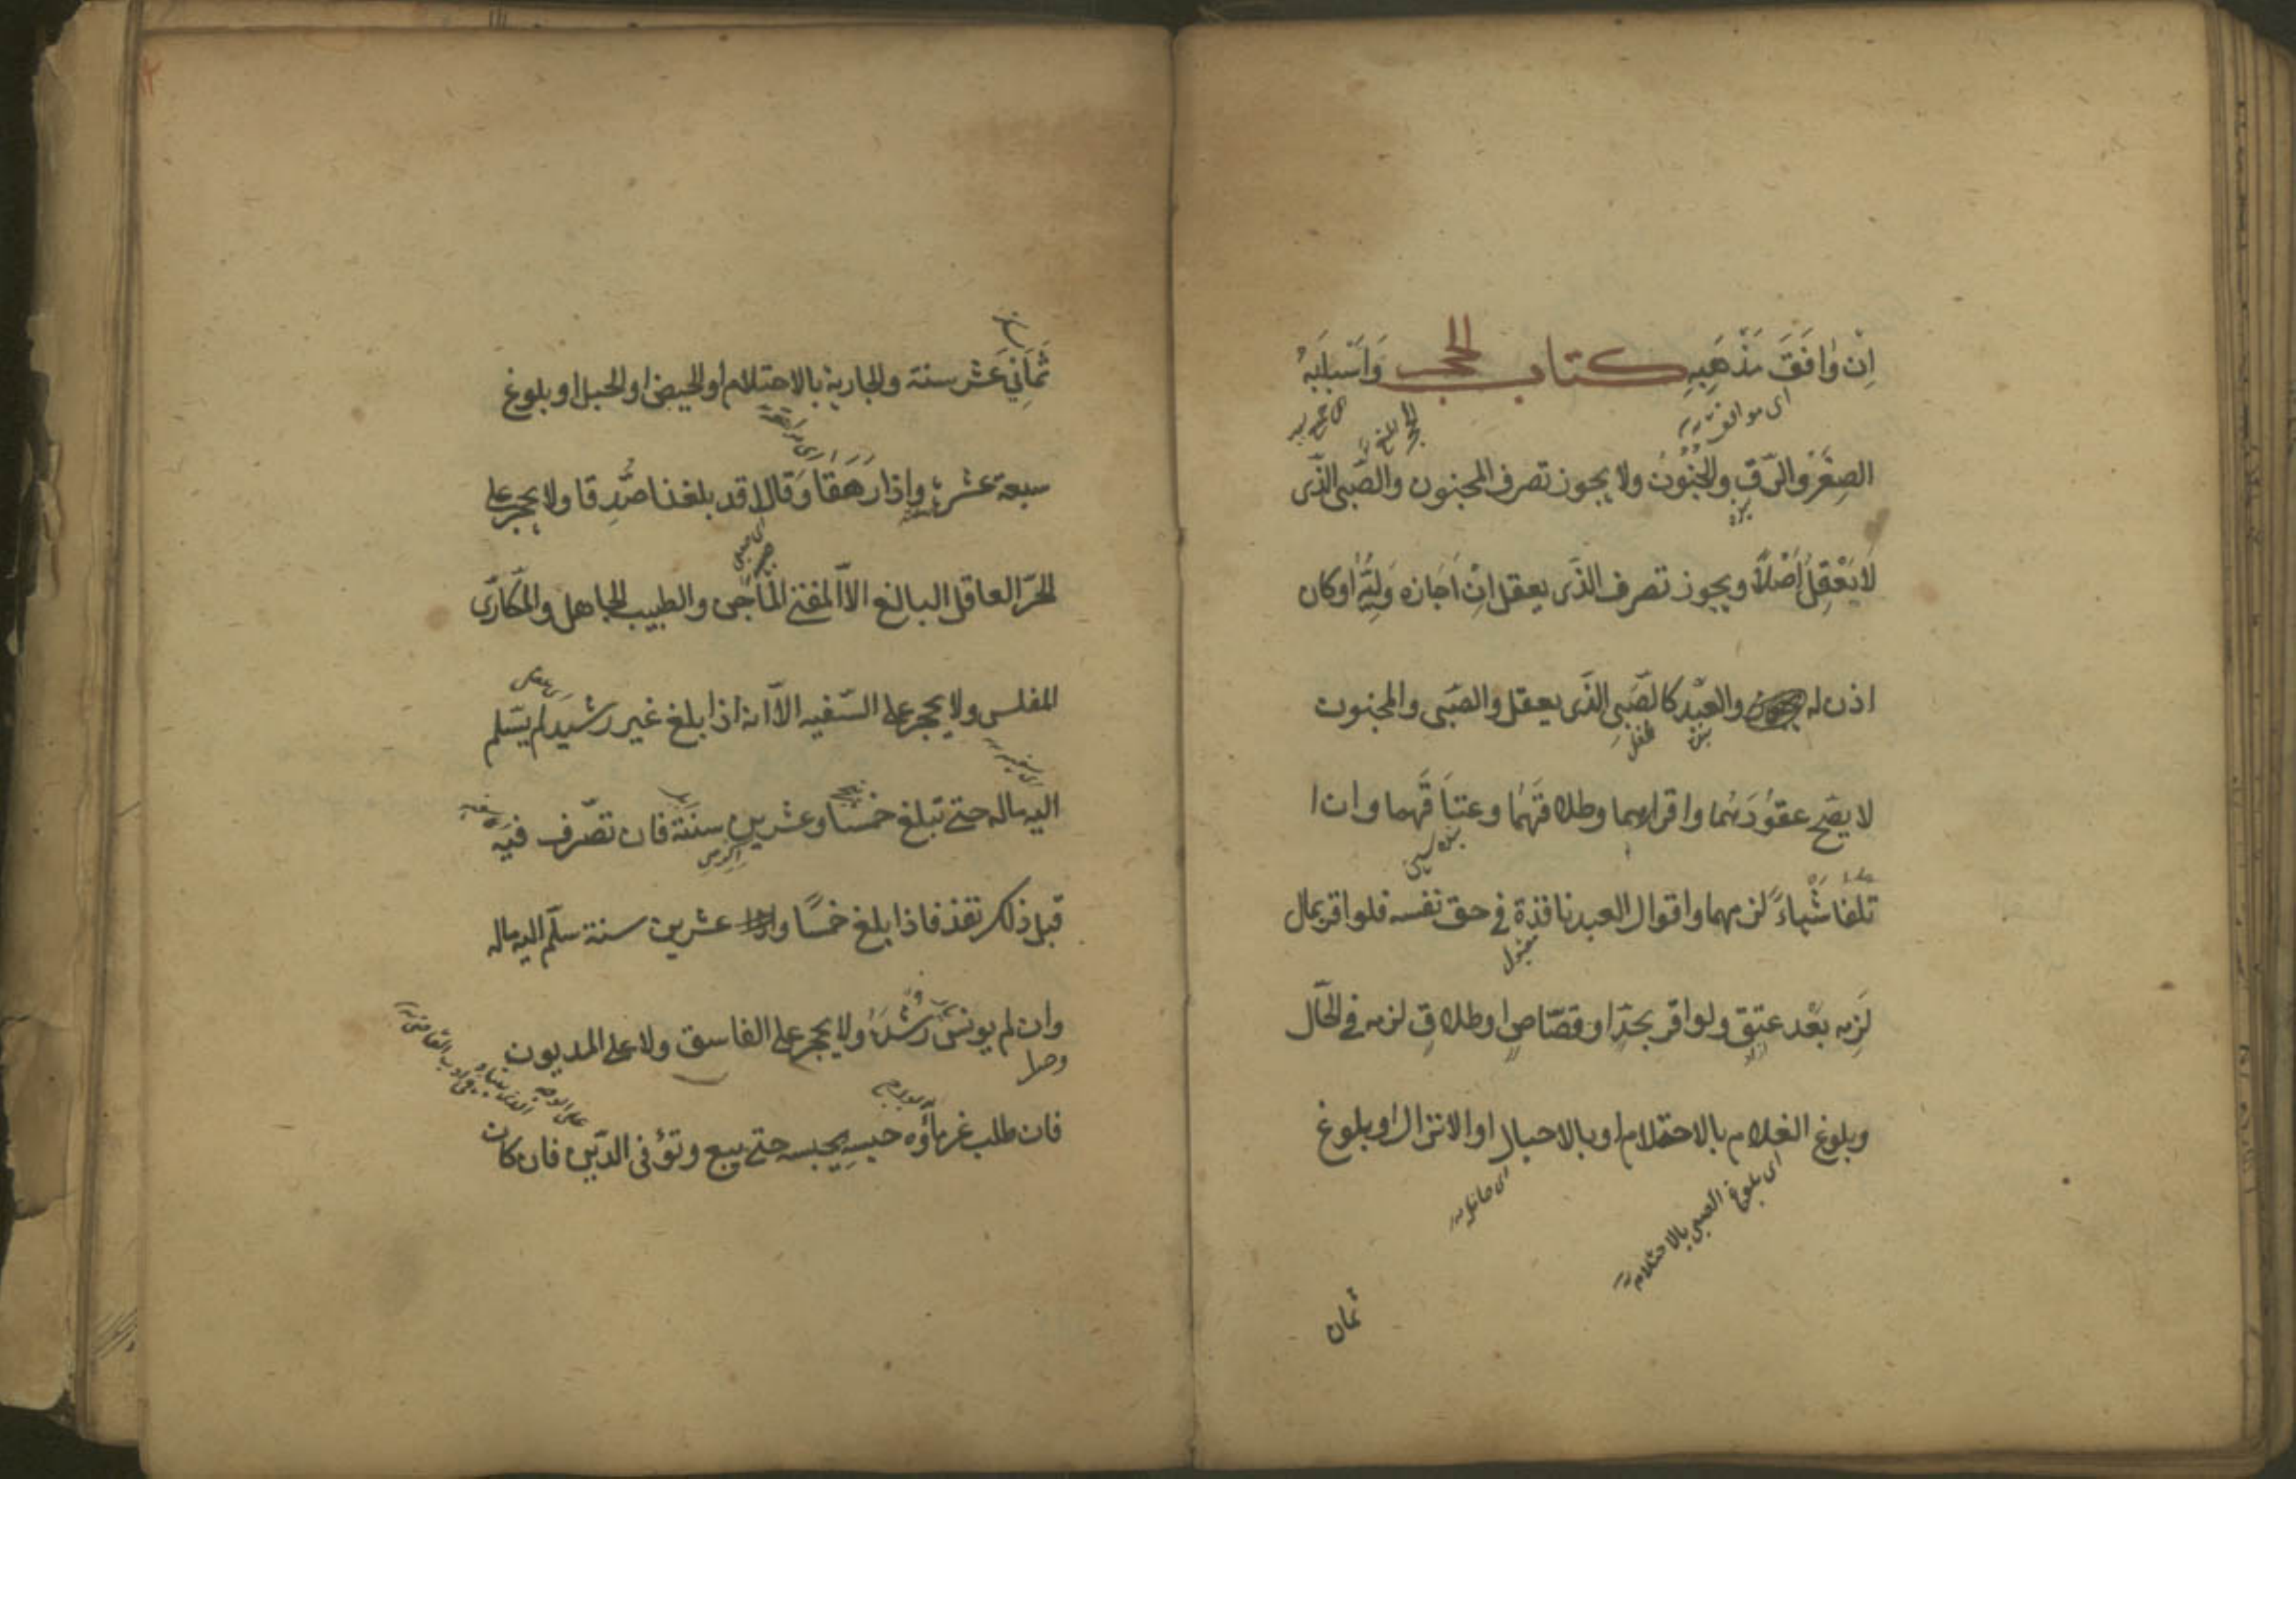 اِنْ وٰافَقَ مَذْهَبِهِ كتاب الحجر وَاَسْبٰابُهُ
اى موافق
الصِغَرُ وَالرِّقِ وَالجُنُونُ ولا يجوز تصرف المجنون والصَّبى الذّى
لاٰ يَعْقِلُ اَصْلاً ويجوز تصرف الذّى يعقل اِنْ اَجَازه وَلِيُّهُ اوكان
اذن له والعَبْد كالصَّبىِ الذّى يعقل والصَبى والمجنون
بنده
طفل
لا يصَح عقوُدَهُما واقرارهما وطلاقَهُما وعتَاقَهما وان ا
تلفا شْياءً لزمهما واقوال العبد نافذة في حق نفسه فلو اقر بمال
مقبول
لَزِمه بعْد عتقِ ولو اقر بحدّ او قصّاصٍ او طلاقٍ لزمه فى الحَال
ازاد
وبلوغ الغلام بالاحتلام او بالاحبال او الانزال او بلوغ
اى بلوغ الصبى بالاحتلام
ثمان
ثَمٰانِي عَشَر سنة والجارية بالاحتلام او الحيض او الحبل او بلوغ
سبعة عشرة واِذا رَهَقا وَقالا قد بلغنا صُدِّقا ولا يحجر على
الحرّ العاقل البالغ الاّ المفتى المٰاجِى والطبيب الجاهل والمكّارى
المفلس ولا يحجر على السّفيه الاّ انه اذا بلغ غير رشيد لم يسّلم
اليه ماله حتى تبلغ خمسا وعشرين سنَة فان تصّرف فيه
قبل ذلك نفذ فاذا بلغ خمسًا و عشرين سنة سلّم اليه ماله
وان لم يونس رُشْدَهُ ولا يحجر على الفاسق ولا على المديون
على الوجه
فان طلب غرماؤه حبسِه يحبسه حتى يبيع وتؤفى الدّين فان كان